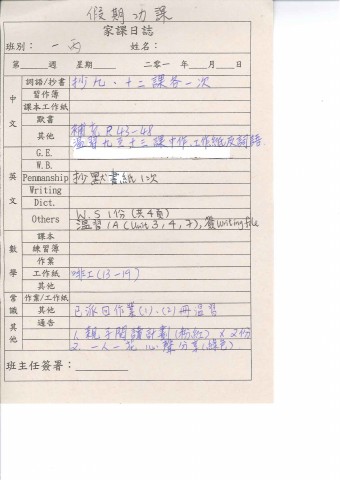 假期功課
家課日誌
班別： 一丙 姓名：
第 週 星期 二零一 年 月 日
中文 詞語/抄書 抄九、十二課各一次
習作簿
課本工作紙
默書
其他 補充P.43-48
溫習九至十三課中作,工作紙及詞語
英文 G.E.
W.B.
Penmanship 抄默書紙1次
Writing
Dict.
Others W.S 1份(共4頁)
溫習1A(Unit 3,4,7),簽writing file
數學 課本
練習簿
作業
工作紙 啡工(13-19)
其他
常識 作業/工作紙
其他 已派回作業(1)、(2)冊溫習
其他 通告
1. 親子閱讀計劃 x 2份
2. 一人一花 心聲分享(綠色)
班主任簽署：